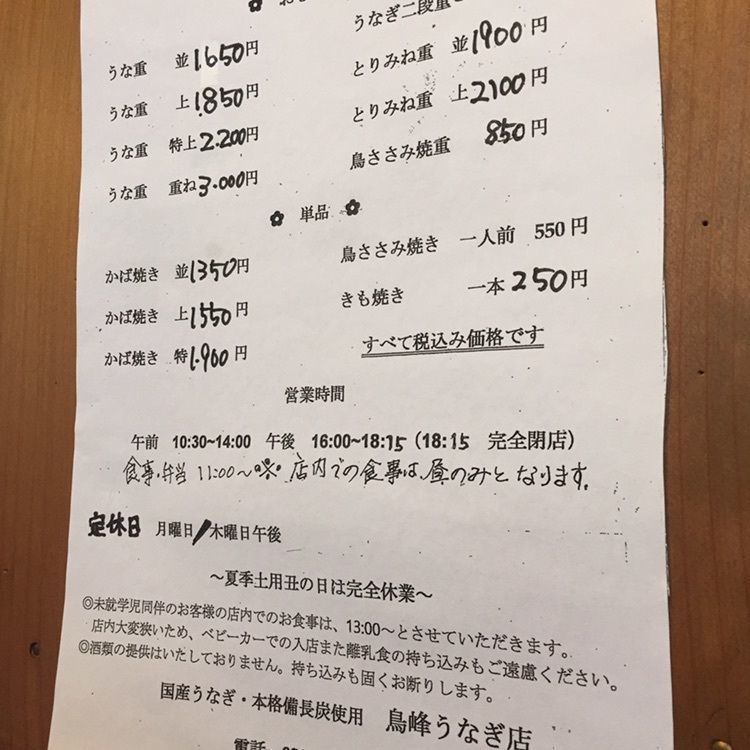 うなぎ二段重
うな重 並 1.650円
うな重 上 1.850円
うな重 特上 2.200円
うな重 重ね 3.000円
とりみね重 並 1900円
とりみね重 上 2100円
鳥ささみ焼重 850円
✿ 単品 ✿
かば焼き 並 1350円
かば焼き 上 1550円
かば焼き 特 1.900円
鳥ささみ焼き 一人前 550円
きも焼き 一本 250円
すべて税込み価格です
営業時間
午前 10:30~14:00 午後 16:00~18:15 (18:15 完全閉店)
食事・弁当 11:00~ ※ 店内での食事は、昼のみとなります。
定休日 月曜日/木曜日午後
~夏季土用丑の日は完全休業~
◎未就学児同伴のお客様の店内でのお食事は、13:00~とさせていただきます。
店内大変狭いため、ベビーカーでの入店また離乳食の持ち込みもご遠慮ください。
◎酒類の提供はいたしておりません。持ち込みも固くお断りします。
国産うなぎ・本格備長炭使用 鳥峰うなぎ店
電話